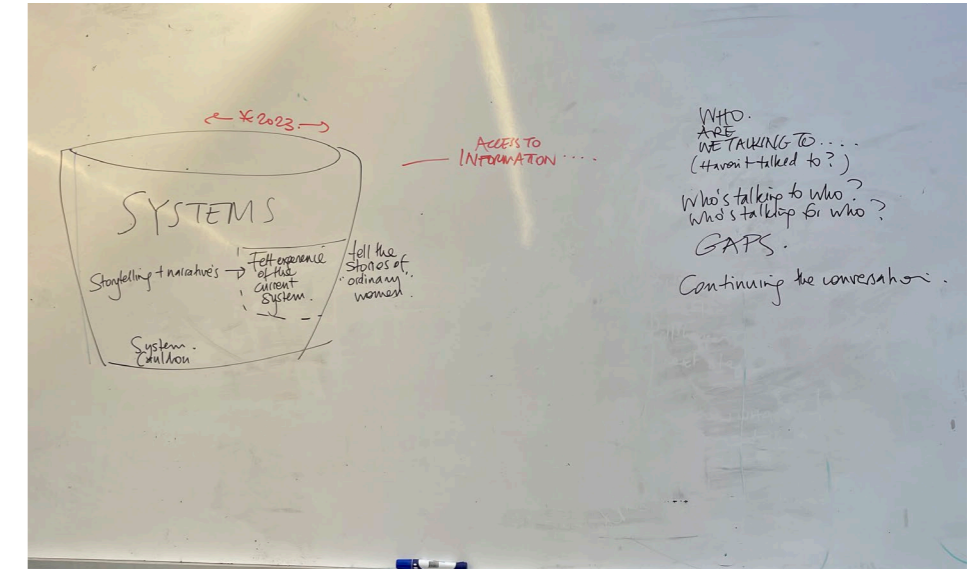 ← *2023. →
SYSTEMS
Storytelling + narrative's →
Felt experience
of the
current
system.
tell the
stories of
"ordinary"
women.
System.
Cauldron
ACCESS TO
INFORMATION ....
WHO.
ARE
WE TALKING TO ....
(Haven't talked to?)
Who's talking to who?
Who's talking for who?
GAPS.
Continuing the conversation.